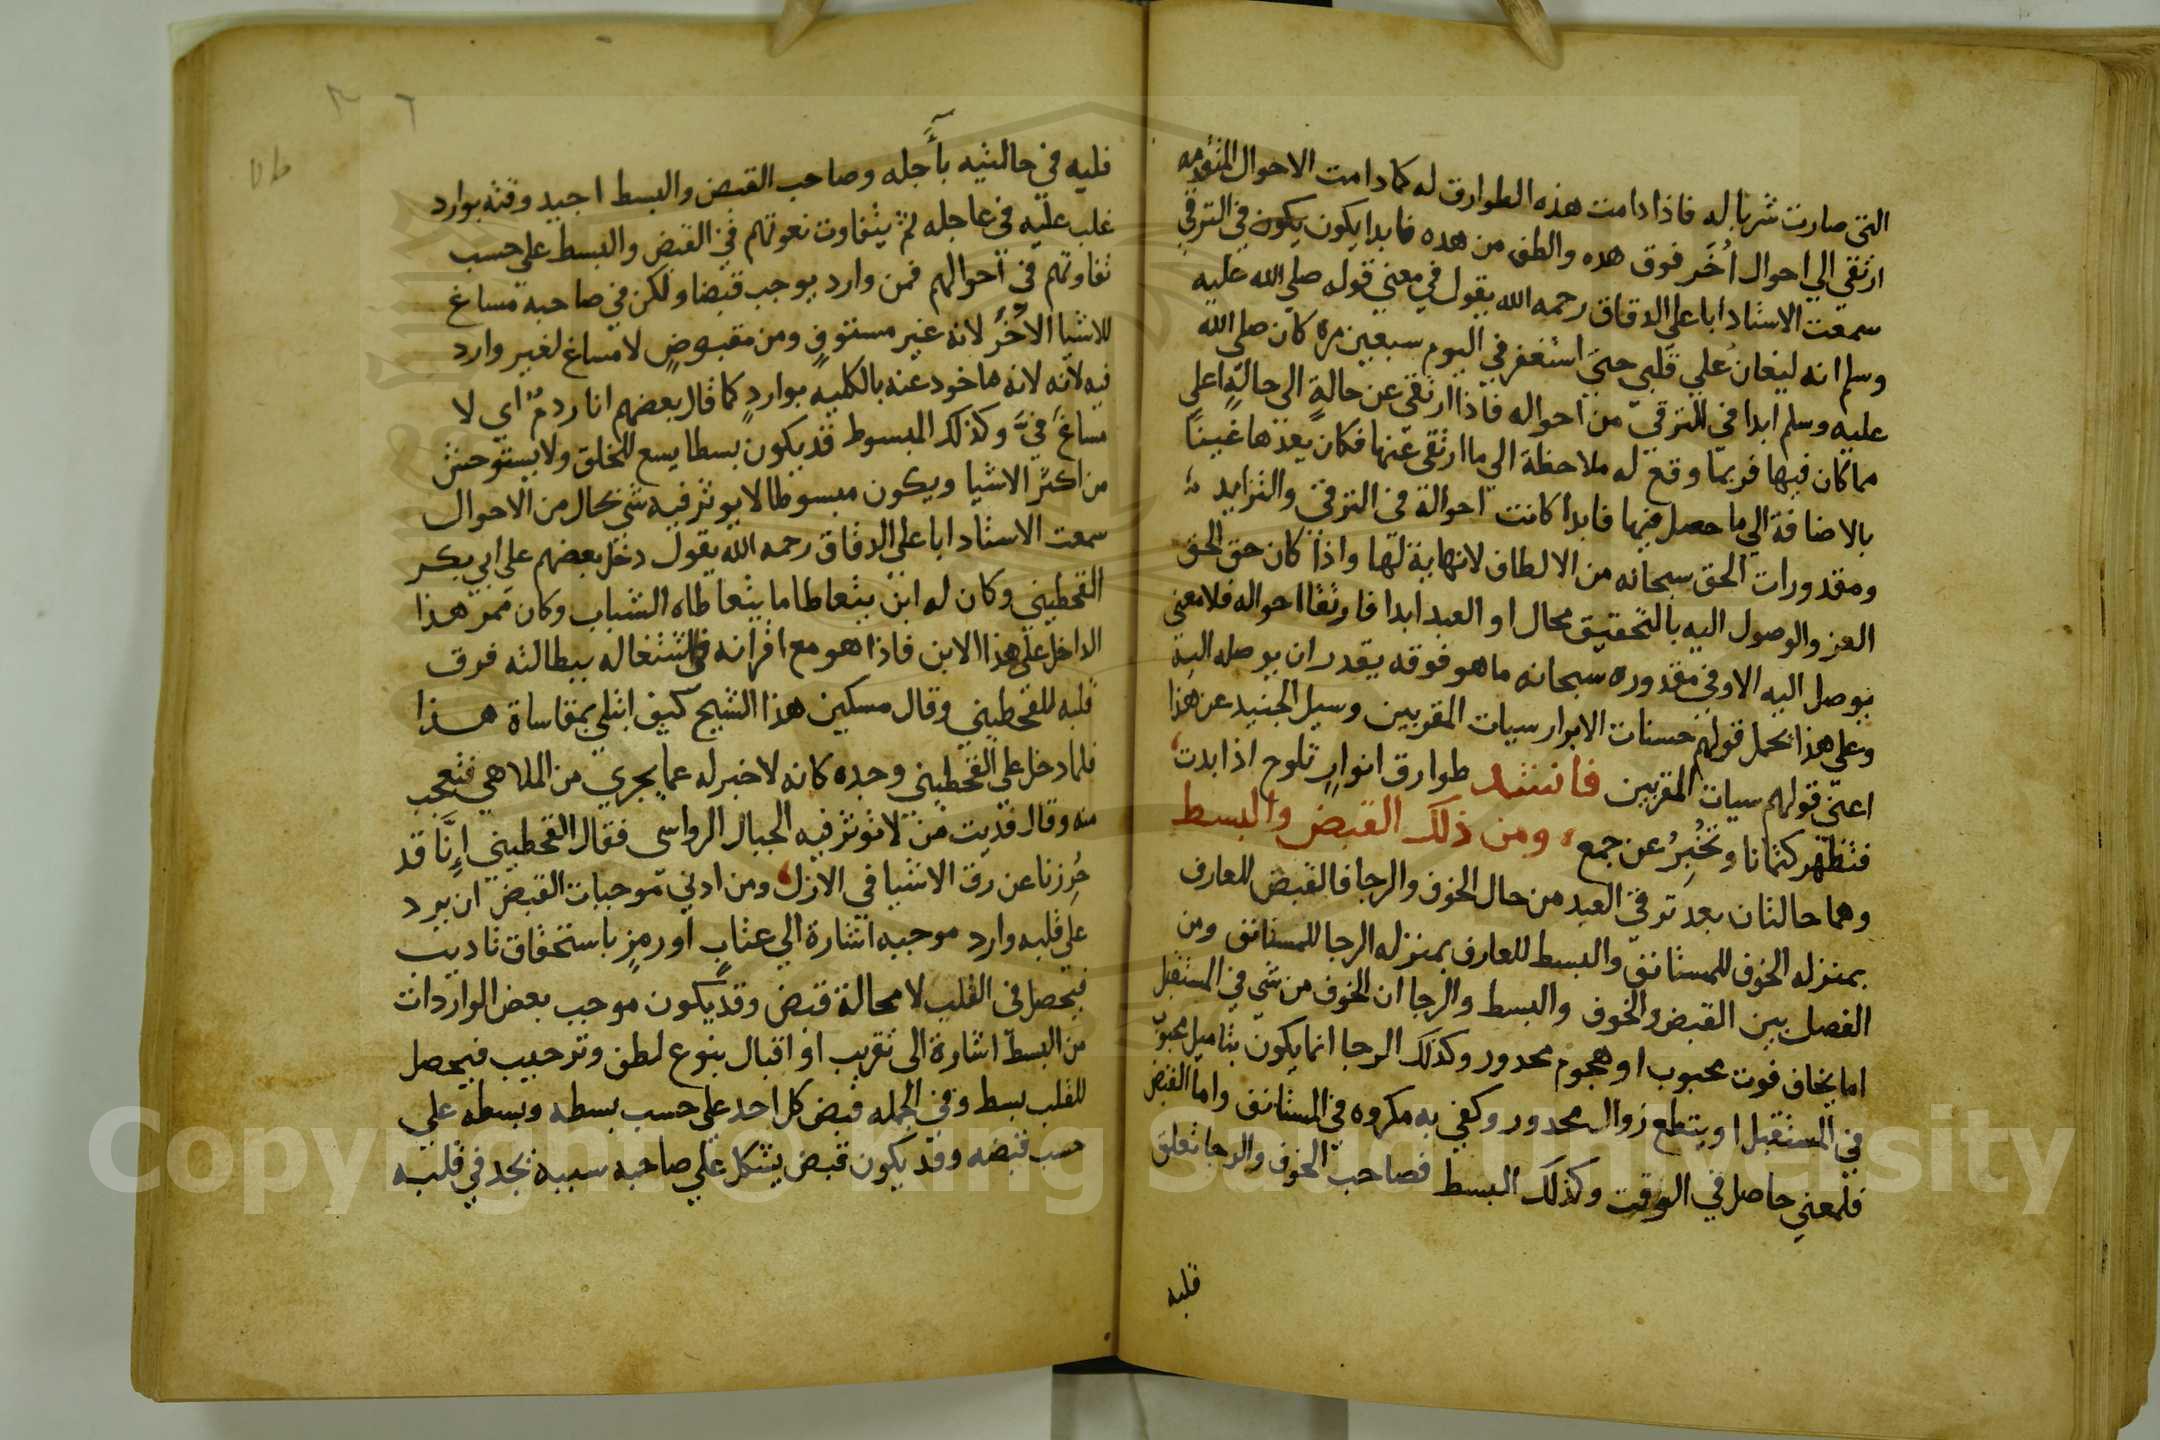 التي صارت شربا له فاذا دامت هذه الطوارق له كما دامت الاحوال المتقدمه
ارتقي الي احوال أُخَر فوق هده والطف من هده فابدا يكون يكون في الترقي
سمعت الاستاد ابا علي الدقاق رحمه الله يقول في معني قوله صلي الله عليه
وسلم انه ليغان علي قلبي حتي استغفر في اليوم سبعين مره كان صلي الله
عليه وسلم ابدا في الترقي من احواله فاذا ارتقي عن حالةٍ الى حالةٍ اعلي
مما كان فيها فربما وقع له ملاحظة الي ما ارتقي عنها فكان يعدها غينًا
بالاضافة الي ما حصل فيها فابدا كانت احوالة في الترقي والتزايد
ومقدورات الحق سبحانه من الالطاف لانهاية لها واذا كان حق الحق
العز والوصول اليه بالتحقيق محال او العبد ابدا فارتقا احواله فلا معني
يوصل اليه الا وفي مقدوره سبحانه ما هو فوقه يقدر ان يوصله اليه
وعلي هذا يحمل قولهم حسنات الابرار سيات المقربين وسيل الجنيد عن هذا
اعني قولهم سيات المقربين فانشد طوارق انوارٍ تلوح اذا بدت
فتظهر كتمانا وتُخبِرُ عن جمع ومن ذلك القبض والبسط
وهما حالتان بعد ترقي العبد من حال الخوف والرجا فالقبض للعارف
بمنزله الخوف للمستانف والبسط للعارف بمنزله الرجا للمستانف ومن
الفصل بين القبض والخوف والبسط والرجا ان الخوف من شي في المستقبل
اما يخاف فوت محبوب او هجوم محدور وكذلك الرجا انما يكون بتاميل محبوب
في المستقبل او يتطلع زوال محدور وكفي به مكروه في المستانف واما القبض
فلمعني حاصل في الوقت وكذلك البسط فصاحب الخوف والرجا تعلق
قلبه
قلبه في حالتيه بآجله وصاحب القبض والبسط اجيد وقته بوارد
غلب عليه في عاجله ثم يتفاوت نعوتهم في القبض والبسط علي حسب
تفاوتهم في احوالهم فمن وارد يوجب قبضا ولكن في صاحبه مساغ
للاشيا الاُخَر لانه غير مستوفٍ ومن مقبوضٍ لا مساغ لغير وارد
فيه لانه لانه ماخود عنه بالكليه بواردٍ كما قال بعضهم انا ردمٌ اي لا
مساغَ فيَّ وكذلك المبسوط قد يكون بسطا يسع الخلق ولا يستوحش
من اكثر الاشيا ويكون مبسوطا لا يوثر فيه شي بحال من الاحوال
سمعت الاستاد ابا علي الدقاق رحمه الله يقول دخل بعضهم علي ابي بكر
القحطبيني وكان له ابن يتعاطا ما يتعاطاه الشباب وكان ممر هذا
الداخل علي هذا الابن فاذا هو مع اقرانه في اشتغاله ببطالته فرق
قلبه للقحطبيني وقال مسكين هذا الشيخ كيف ابتلي بمقاساة هذا
فلما دخل علي القحطبيني وجده كانه لا خبر له عما يجري من الملاهي فتعجب
منه وقال فديت من لا توثر فيه الجبال الرواسي فقال القحطبيني اِنَّا قد
حُرِزنا عن رق الاشيا في الازل ومن ادني موجبات القبض ان يرد
علي قلبه وارد موجبه اشارة الي عتابٍ او رمزٍ باستحقاق تاديب
فيحصل في القلب لا محالة قبض وقد يكون موجب بعض الواردات
من البسط اشارة الى تقريب او اقبال بنوع لطف وترحيب فيحصل
للقلب بسط وفي الجمله قبض كل احد على حسب بسطه وبسطه علي
حسب قبضه وقد يكون قبض يشكل علي صاحبه سببه يجد في قلبه
Copyright © King Saud University